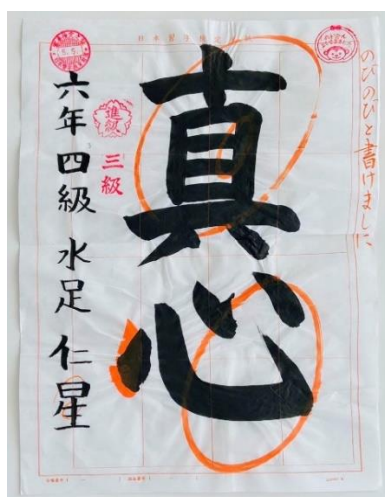 のびのびと書けました
真心
進級
三級
六年 四級 水足 仁星